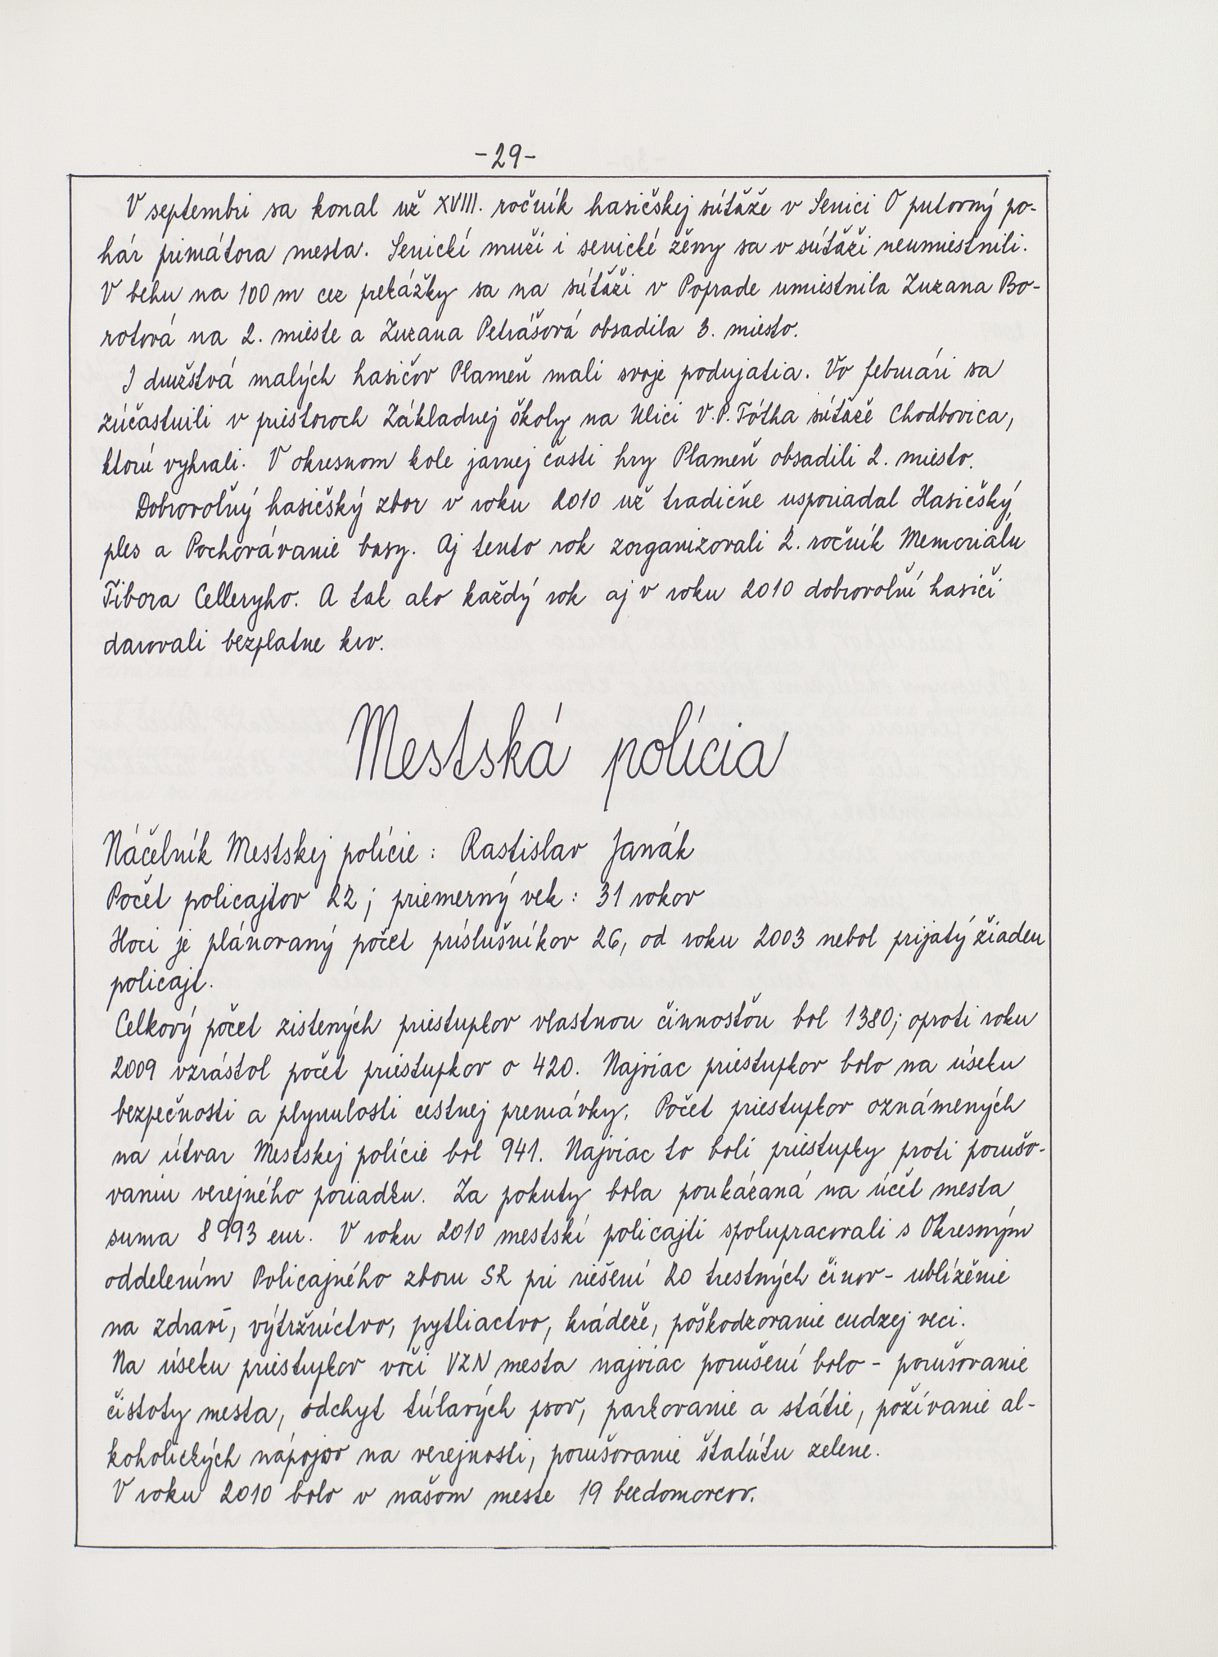 -29-
V septembri sa konal už XVIII. ročník hasičskej súťaže v Senici O putovný po-
hár primátora mesta. Senickí muži i senické ženy sa v súťaži neumiestnili.
V behu na 100 m cez prekážky sa na súťaži v Poprade umiestnila Zuzana Bo-
rotová na 2. mieste a Zuzana Petrášová obsadila 3. miesto.
I družstvá malých hasičov Plameň mali svoje podujatia. Vo februári sa
zúčastnili v priestoroch Základnej školy na Ulici V. P. Tótha súťaže Chodbovica,
ktorú vyhrali. V okresnom kole jarnej časti hry Plameň obsadili 2. miesto.
Dobrovoľný hasičský zbor v roku 2010 už tradične usporiadal Hasičský
ples a Pochovávanie basy. Aj tento rok zorganizovali 2. ročník Memoriálu
Tibora Celleryho. A tak ako každý rok aj v roku 2010 dobrovoľní hasiči
darovali bezplatne krv.
Mestská polícia
Náčelník Mestskej polície : Rastislav Janák
Počet policajtov 22 ; priemerný vek : 31 rokov
Hoci je plánovaný počet príslušníkov 26, od roku 2003 nebol prijatý žiaden
policajt.
Celkový počet zistených priestupkov vlastnou činnosťou bol 1380; oproti roku
2009 vzrástol počet priestupkov o 420. Najviac priestupkov bolo na úseku
bezpečnosti a plynulosti cestnej premávky. Počet priestupkov oznámených
na útvar Mestskej polície bol 941. Najviac to boli priestupky proti porušo-
vaniu verejného poriadku. Za pokuty bola poukázaná na účet mesta
suma 8 993 eur. V roku 2010 mestskí policajti spolupracovali s Okresným
oddelením Policajného zboru SR pri riešení 20 trestných činov - ublíženie
na zdraví, výtržníctvo, pytliactvo, krádeže, poškodzovanie cudzej veci.
Na úseku priestupkov voči VZN mesta najviac porušení bolo - porušovanie
čistoty mesta, odchyt túlavých psov, parkovanie a státie, požívanie al-
koholických nápojov na verejnosti, porušovanie štatútu zelene.
V roku 2010 bolo v našom meste 19 bezdomovcov.